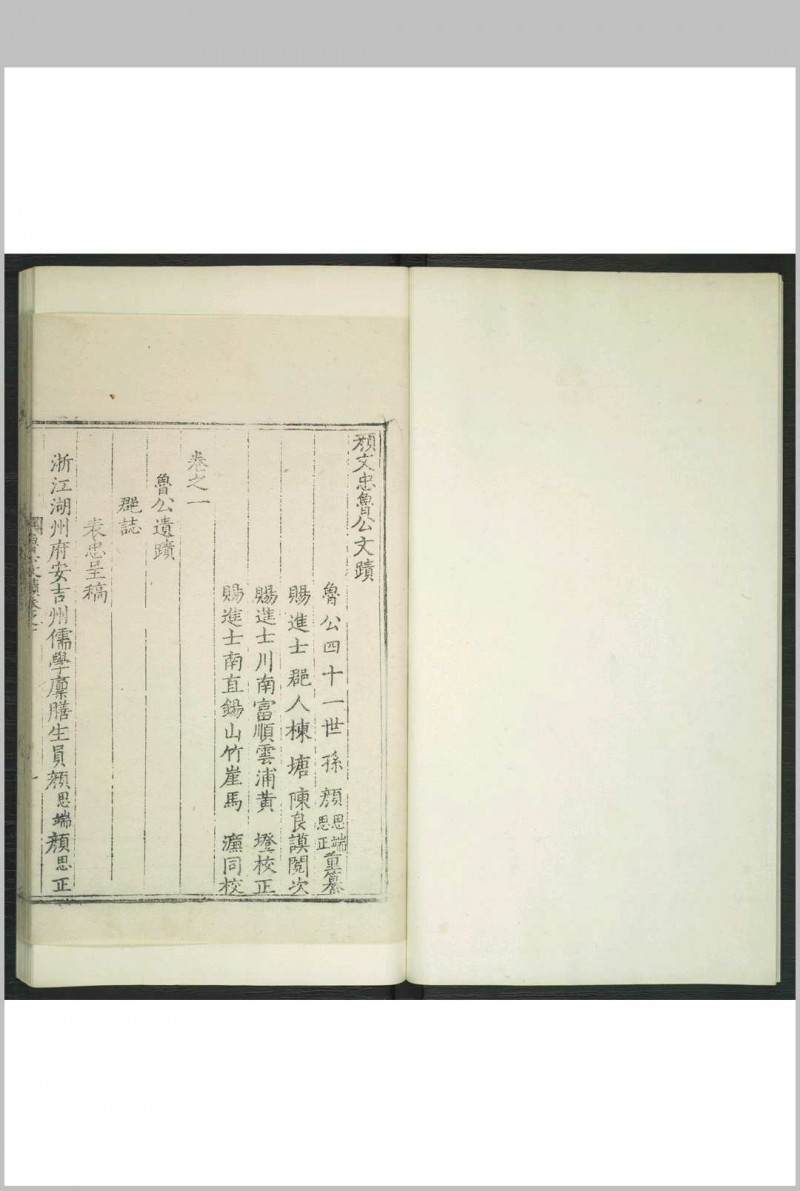 顏文忠魯公文蹟
魯公四十一世孫顏思端思正重纂
賜進士郡人棟塘陳良謨閱次
賜進士川南富順雲浦黃 墱校正
賜進士南直錫山竹崖馬 濂同校
卷之一
魯公遺蹟
郡誌
表忠呈稿
浙江湖州府安吉州儒學廩膳生員顏思端顏思正